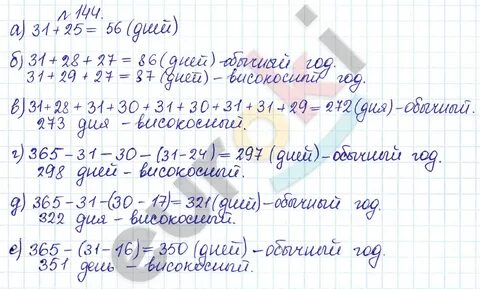 № 144.
а) 31 + 25 = 56 (дней)
б) 31 + 28 + 27 = 86 (дней) - обычный год.
31 + 29 + 27 = 87 (дней) - високосный год.
в) 31 + 28 + 31 + 30 + 31 + 30 + 31 + 31 + 29 = 272 (дня) - обычный.
273 дня - високосный.
г) 365 - 31 - 30 - (31 - 24) = 297 (дней) - обычный год.
298 дней - високосный.
д) 365 - 31 - (30 - 17) = 321 (дней) - обычный год.
322 дня - високосный.
е) 365 - (31 - 16) = 350 (дней) - обычный год.
351 день - високосный.
euroki